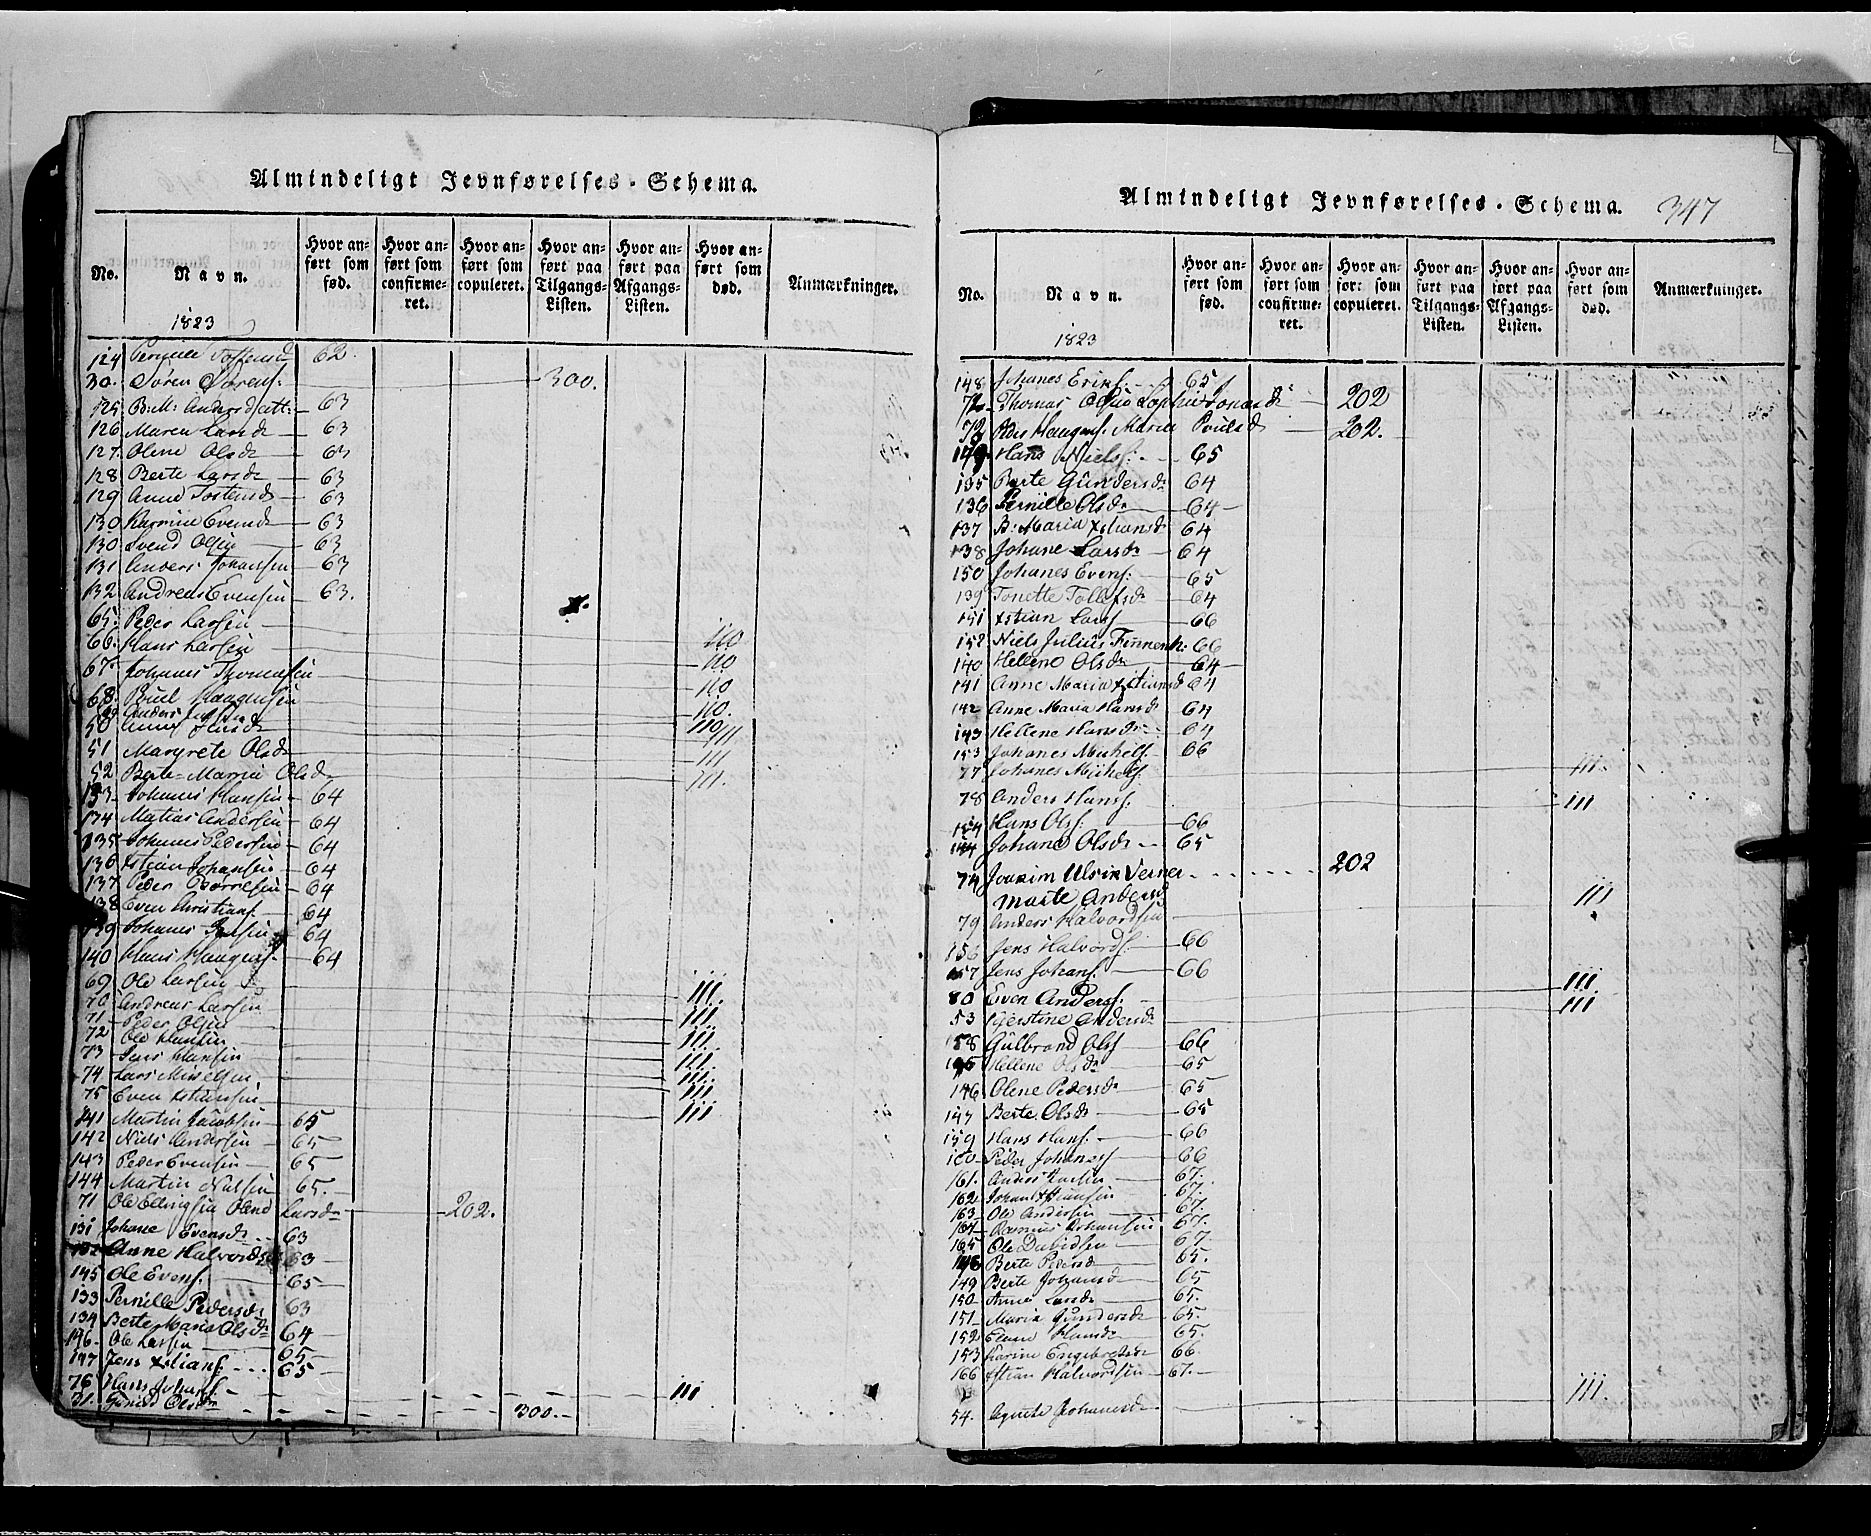 Almindeligt Jevnførelses-Schema.
No. Navn. Hvor anført som fød. Hvor anført som confirmeret. Hvor anført som copuleret. Hvor anført paa Tilgangs-Listen. Hvor anført paa Afgangs-Listen. Hvor anført som død. Anmærkninger.
1823
124 Pernille Tostensd 62.
30. Søren Sørens. 300.
125 B: M: Andersdatt: 63
126 Maren Larsd 63
127. Oline Olsd 63
128 Berte Larsd 63
129 Anne Tostensd 63
130 Karnine Evensd 63
130 Svend Olsen 63
131 Anders Johansen 63
132 Andreas Evensen 63.
65. Peder Larsen 110
66. Hans Larsen 110
67. Johanes Thomesen 110
68. Poul Haagensen 110.
Anders 110
50 Anne Jensd 111
51 Margrete Olsd 111
52 Berte Maria Olsd 111.
133 Johanes Hansen 64
134 Matias Andersen 64
135 Johannes Pedersen 64
136 Xstian Johansen 64
137 Peder 64
138 Even Christians. 64
139 Johanes 64
140 Hans Haagens. 64
69 Ole Larsen 111.
70 Andreas Larsen 111.
71 Peder Olsen 111.
72 Ole Hansen 111.
73 Jens Hansen 111.
74 Lars 111
75 Even Xstiansen 111
141 Martin Jacobsen 65
142 Niels Andersen 65
143 Peder Evensen 65
144 Martin Nielsen 65.
71 Ole Ellingsen Olene Larsd 202.
131 Johane Evensd 63
132 Anne Halvordsd 63
145 Ole Evens. 65
133 Pernille Pedersd 63
134 Berte Maria Olsd 64
146. Ole Larsen 65
147 Jens Xstians. 65
76 Hans Johans. 111
31. Gunild Olsd 300.
Almindeligt Jevnførelses-Schema. 347
No. Navn. Hvor anført som fød. Hvor anført som confirmeret. Hvor anført som copuleret. Hvor anført paa Tilgangs-Listen. Hvor anført paa Afgangs-Listen. Hvor anført som død. Anmærkninger.
1823
148 Johanes Eriks. 65
72 Thomas 202
73 Peder Haagens. Maria Poulsd 202.
149 Hans Niels. 65
135 Berte Gundersd 64
136 Pernille Olsd 64
137 B: Maria Xstiansd 64
138 Johane Larsd 64
150 Johanes Evens. 65
139 Tonette Tollefsd 64
151 Xstian Lars 66
152 Niels Julius 66
140 Hellene Olsd 64
141 Anne Maria Xstiansd 64
142 Anne Maria Hansd 64
143 Hellene Hansd 64
153 Johanes Michels. 66
77 Johanes Michels. 111.
78 Anders Hans. 111
154 Hans Ols. 66
144 Johane Olsd 65
74 Joakim Ulrik Verner 202
Marte Andersd
79 Anders Halvordsen 111
156 Jens Halvords. 66
157 Jens Johans. 66
80 Even Anders. 111.
53 Kjerstine Andersd 111
158 Gulbrand Ols 66
145 Hellene Olsd 65
146 Olene Pedersd 65
147 Berte Olsd 65
159 Hans Hans. 66
160 Peder Johanes 66
161. Anders 67.
162 Johan Xstiansen 67.
163 Ole Andersen 67.
164 Rasmus Johansen 67.
165 Ole Davidsen 67
148 Berte Pedersd 65.
149 Berte Johansd 65
150 Anne Larsd 65.
151 Maria Gundersd 65.
152 Hansd 65.
153 Karine Engebretsd 66
166 Xstian Halvordsen 67.
54. Agnete Johanesd 111.